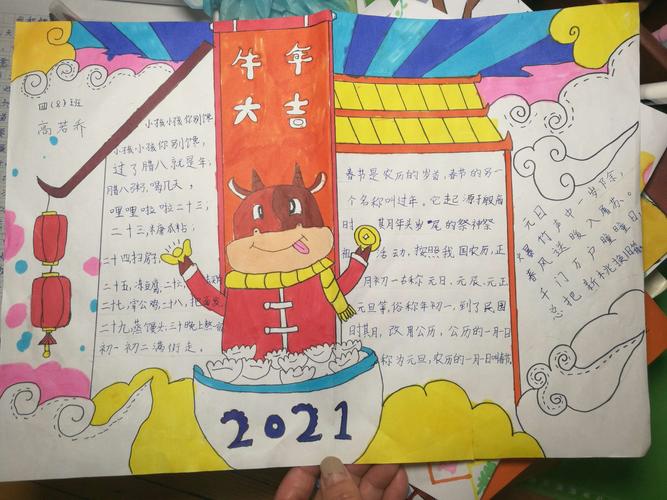 四(8)班
高若乔
小孩小孩你别馋
小孩小孩你别馋
过了腊八就是年,
腊八粥,喝几天,
哩哩啦啦二十三;
二十三,糖瓜粘;
二十四扫房
二十五,冻豆腐,二十六,
二十七,宰公鸡,二十八,把面发,
二十九蒸馒头,三十晚上熬一
初一初二满街走。
牛年
大吉
春节是农历的岁首,春节的另一
个名称叫过年。它起源于殷商
时期年头岁尾的祭神祭
祖活动,按照我国农历,正
月初一古称元日、元辰、元正
元旦等,俗称年初一,到了民国
时期,改用公历,公历的一月一日
称为元旦,农历的一月一日叫春节。
元日
爆竹声中一岁除,
春风送暖入屠苏。
千门万户曈曈日,
总把新桃换旧
2021